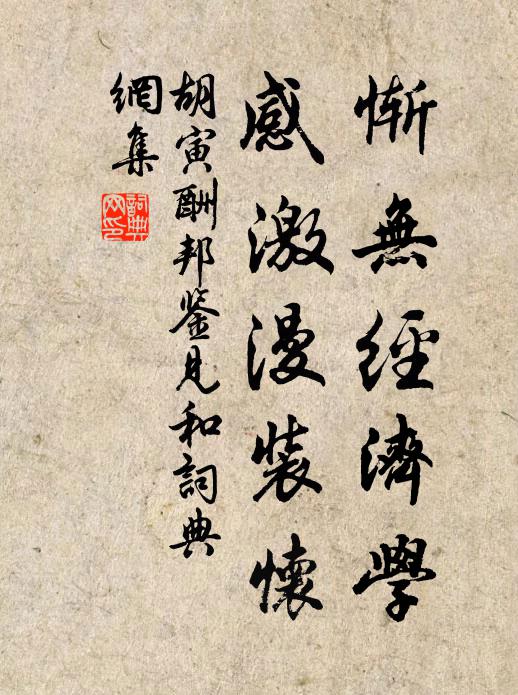 慚無經濟學
感激漫裝懷
胡寅酬邦鉴見和詞典
網集
詞典
网印